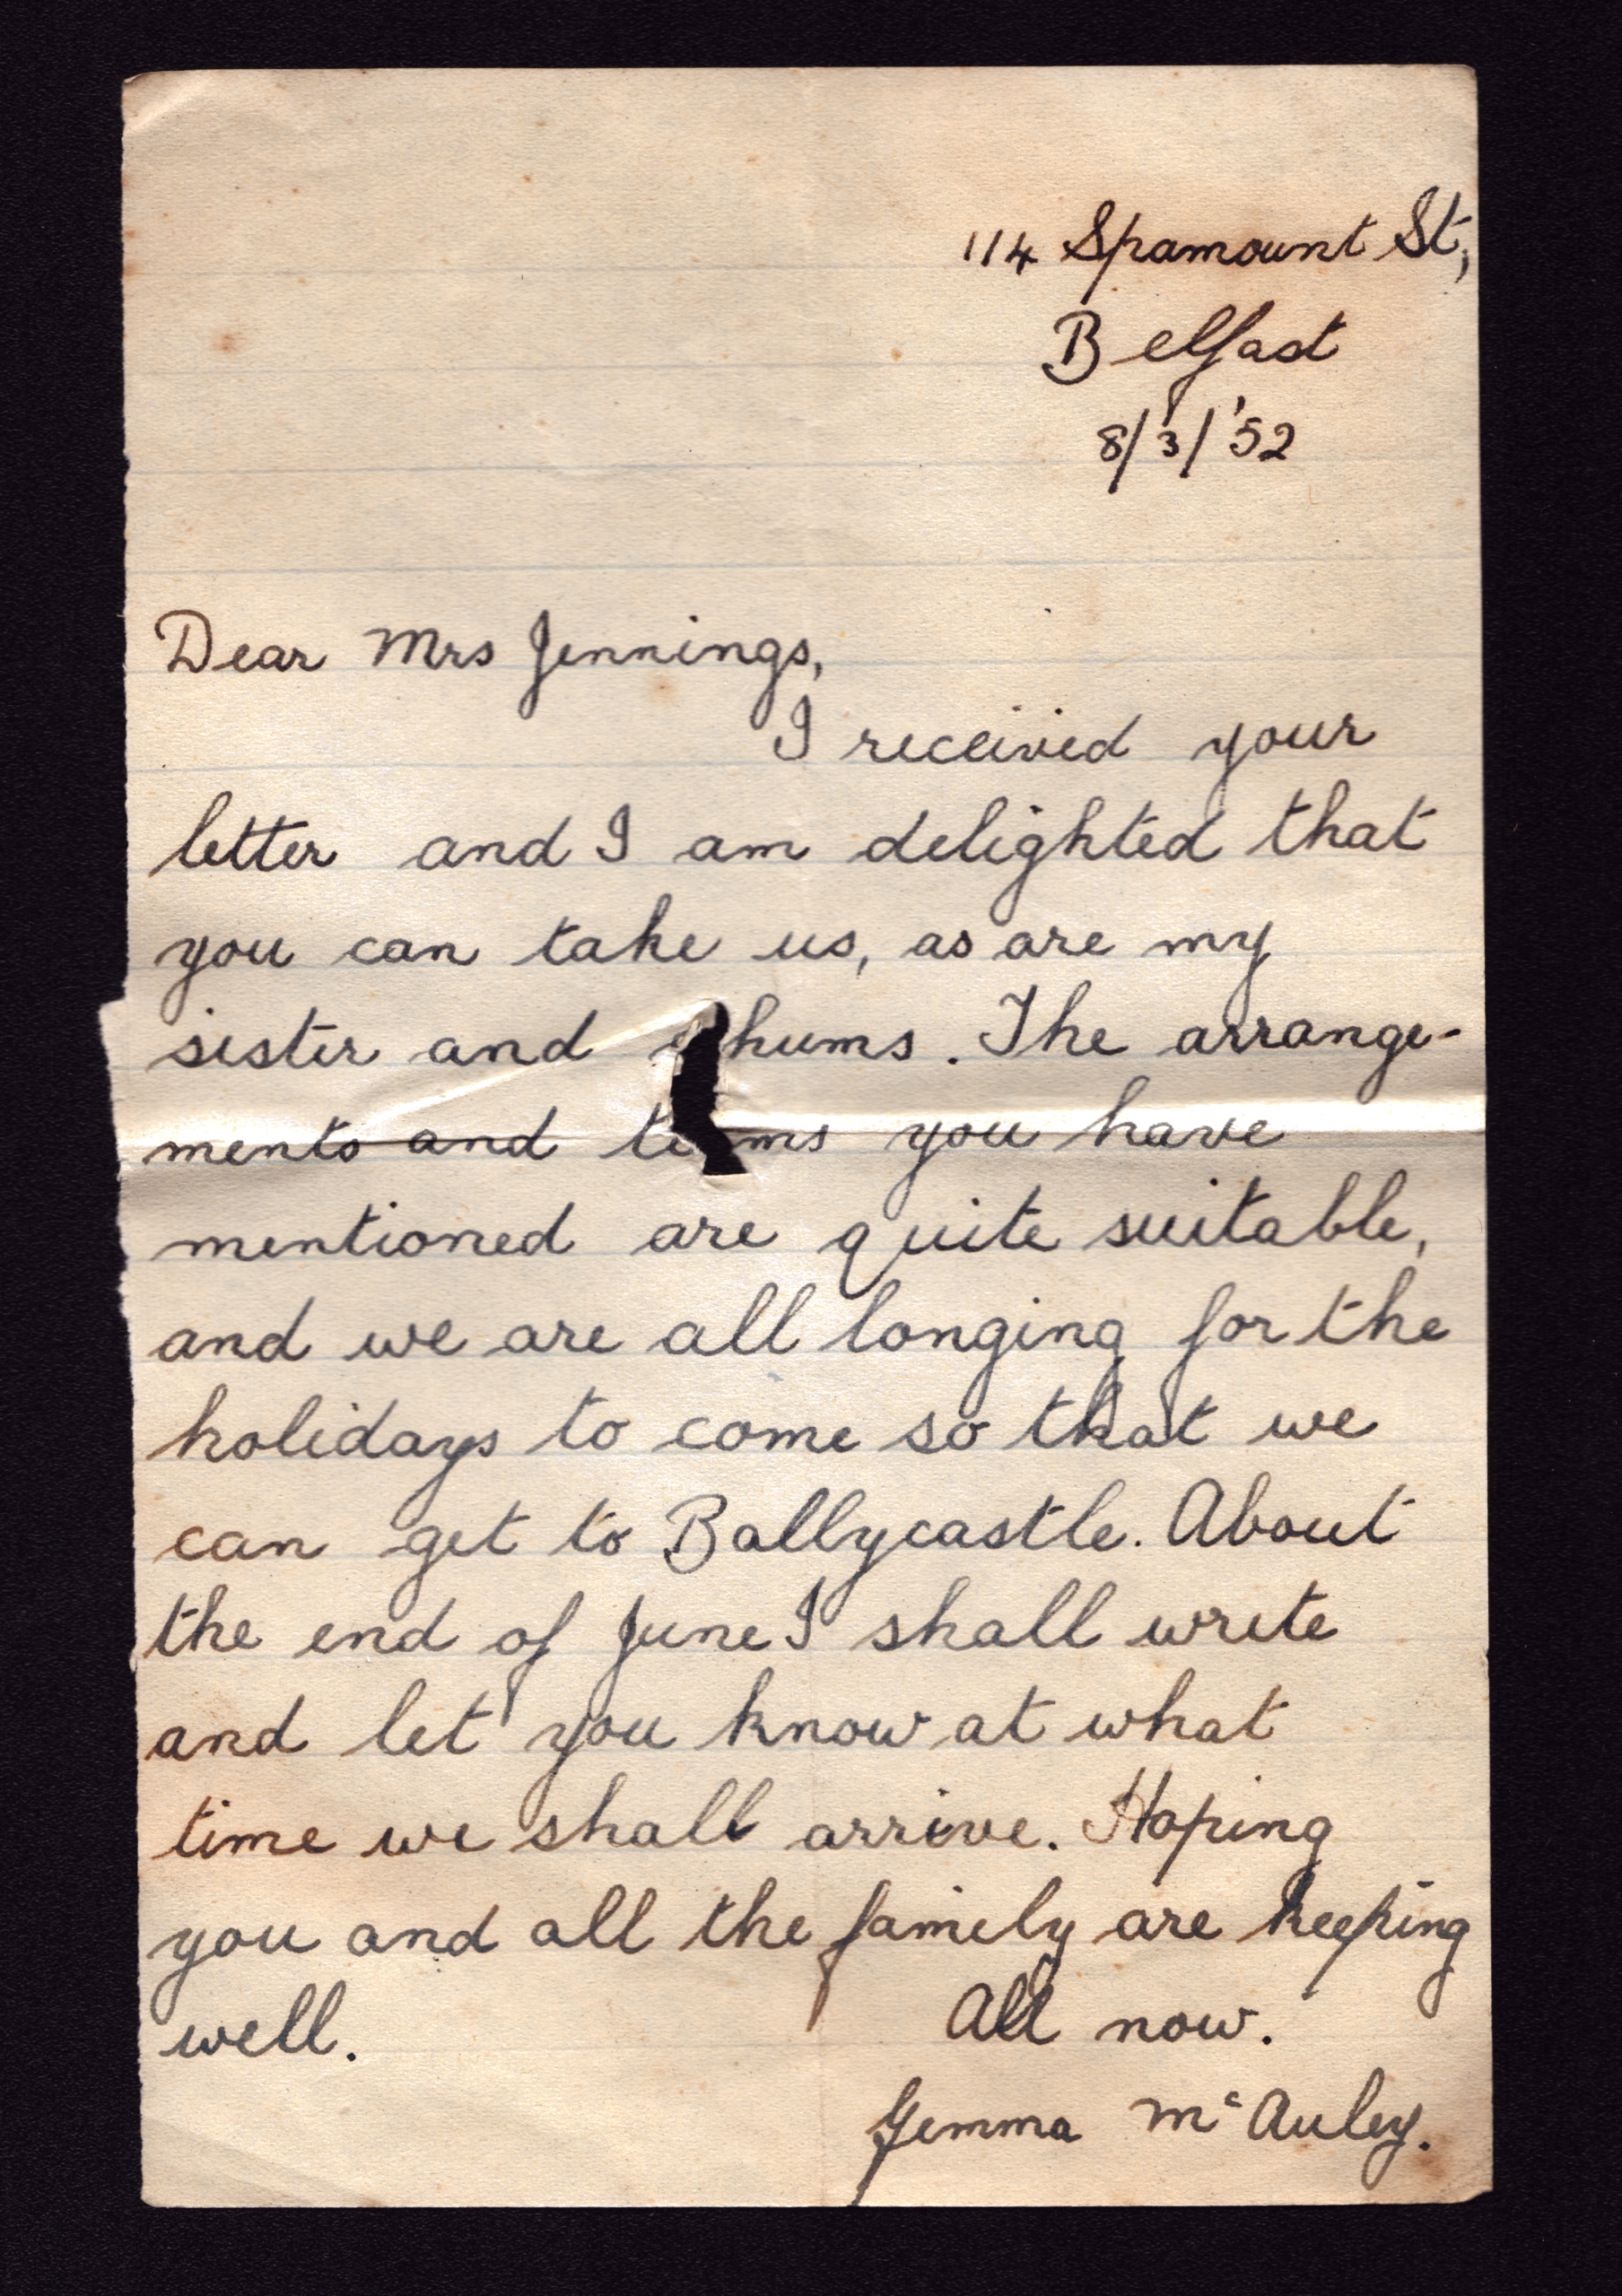 114 Spamount St,
Belfast
8/3/'52
Dear Mrs Jennings,
I received your
letter and I am delighted that
you can take us, as are my
sister and chums. The arrange-
ments and terms you have
mentioned are quite suitable,
and we are all longing for the
holidays to come so that we
can get to Ballycastle. About
the end of June I shall write
and let you know at what
time we shall arrive. Hoping
you and all the family are keeping
well. All now.
Gemma McAuley.